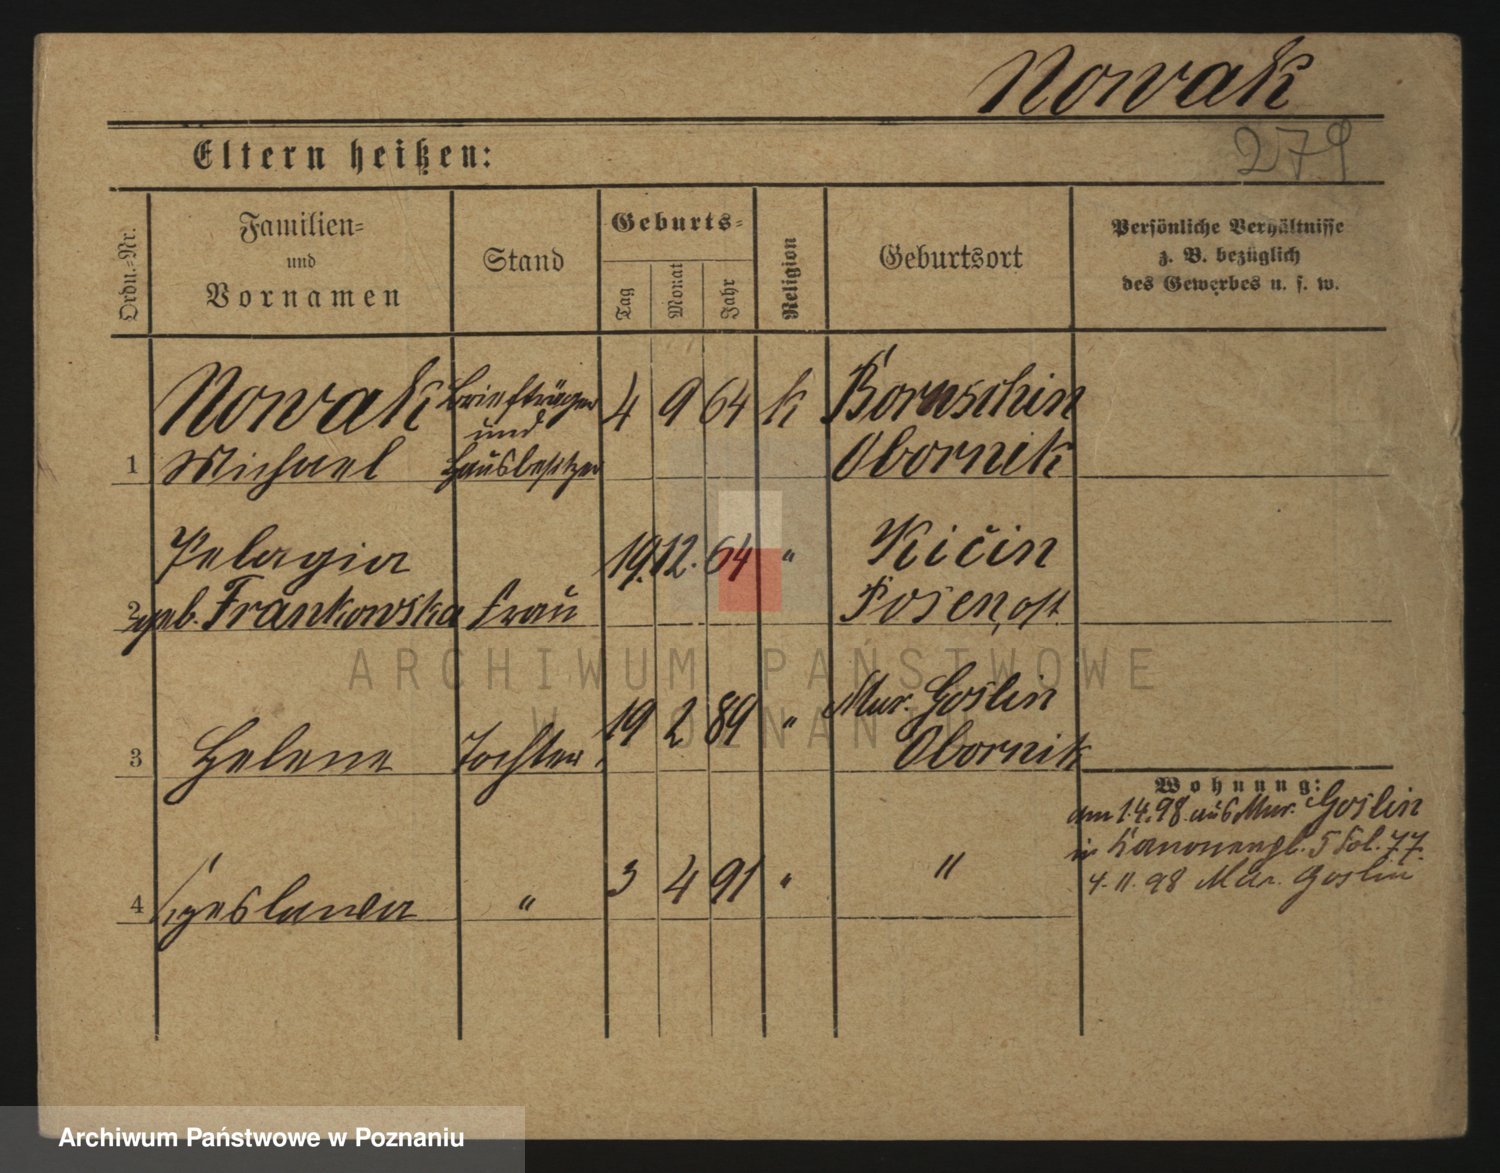 Nowak
279
Eltern heißen:
Ordn.-Nr.
Familien-
und
Vornamen
Stand
Geburts-
Tag
Monat
Jahr
Religion
Geburtsort
Persönliche Verhältnisse
z. B. bezüglich
des Gewerbes u. s. w.
1
Nowak
Michael
Briefträger
und
Hausbesitzer
4 9 64 k
Bornschin
Obornik
2
Pelagia
geb. Frankowska
Frau
19. 12. 64 "
Kičin
Posen, ost
3
Helene
Tochter
19 2 89 "
Mur. Goslin
Obornik
4
" 3 4 91 " "
Wohnung:
am 1.4.98 aus Mur. Goslin
in Kanonenpl. 5 Fol. 77.
4. 11. 98 Mur. Goslin
ARCHIWUM PAŃSTWOWE
W POZNANIU
Archiwum Państwowe w Poznaniu